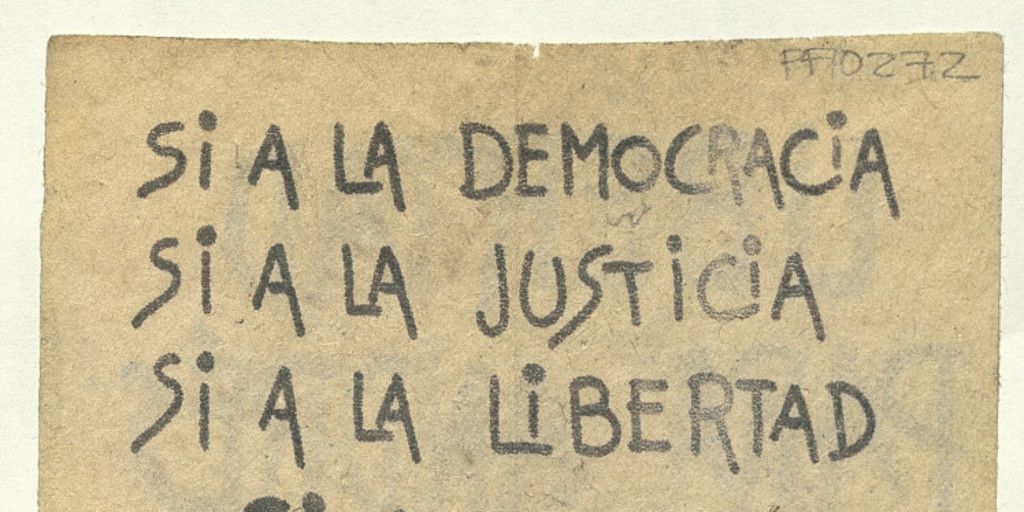 PF70272
Si A LA DEMOCRACiA
Si A LA JUSTiCiA
Si A LA LiBERTAD
Si